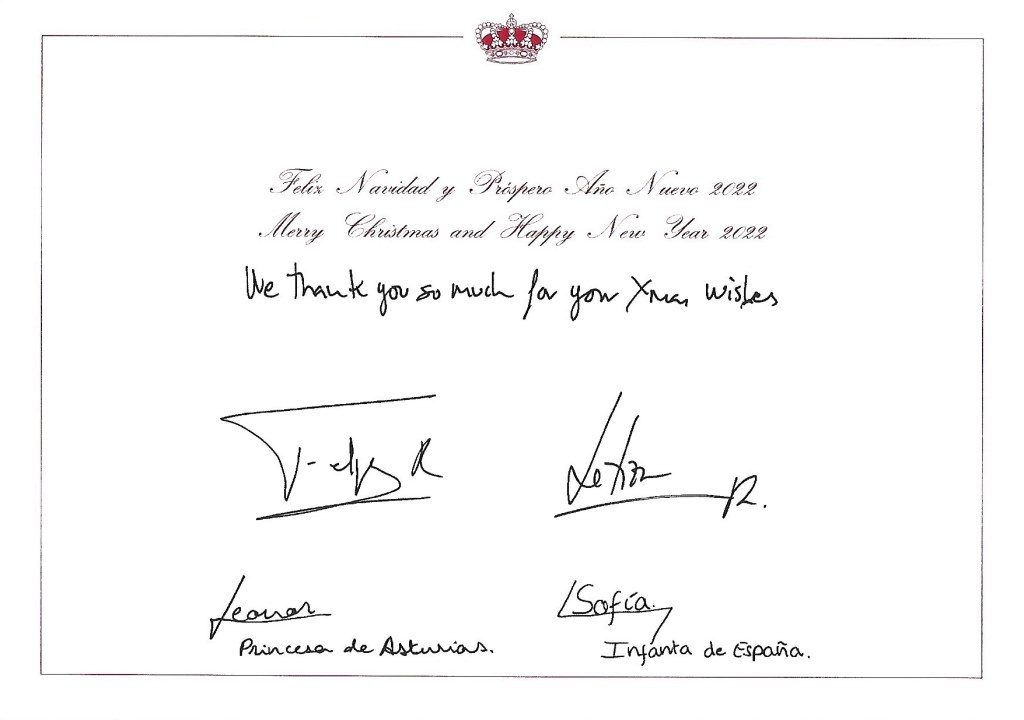 Feliz Navidad y Próspero Año Nuevo 2022
Merry Christmas and Happy New Year 2022
We thank you so much for your Xmas wishes
Felipe R
Letizia R.
Leonor
Princesa de Asturias.
Sofía.
Infanta de España.